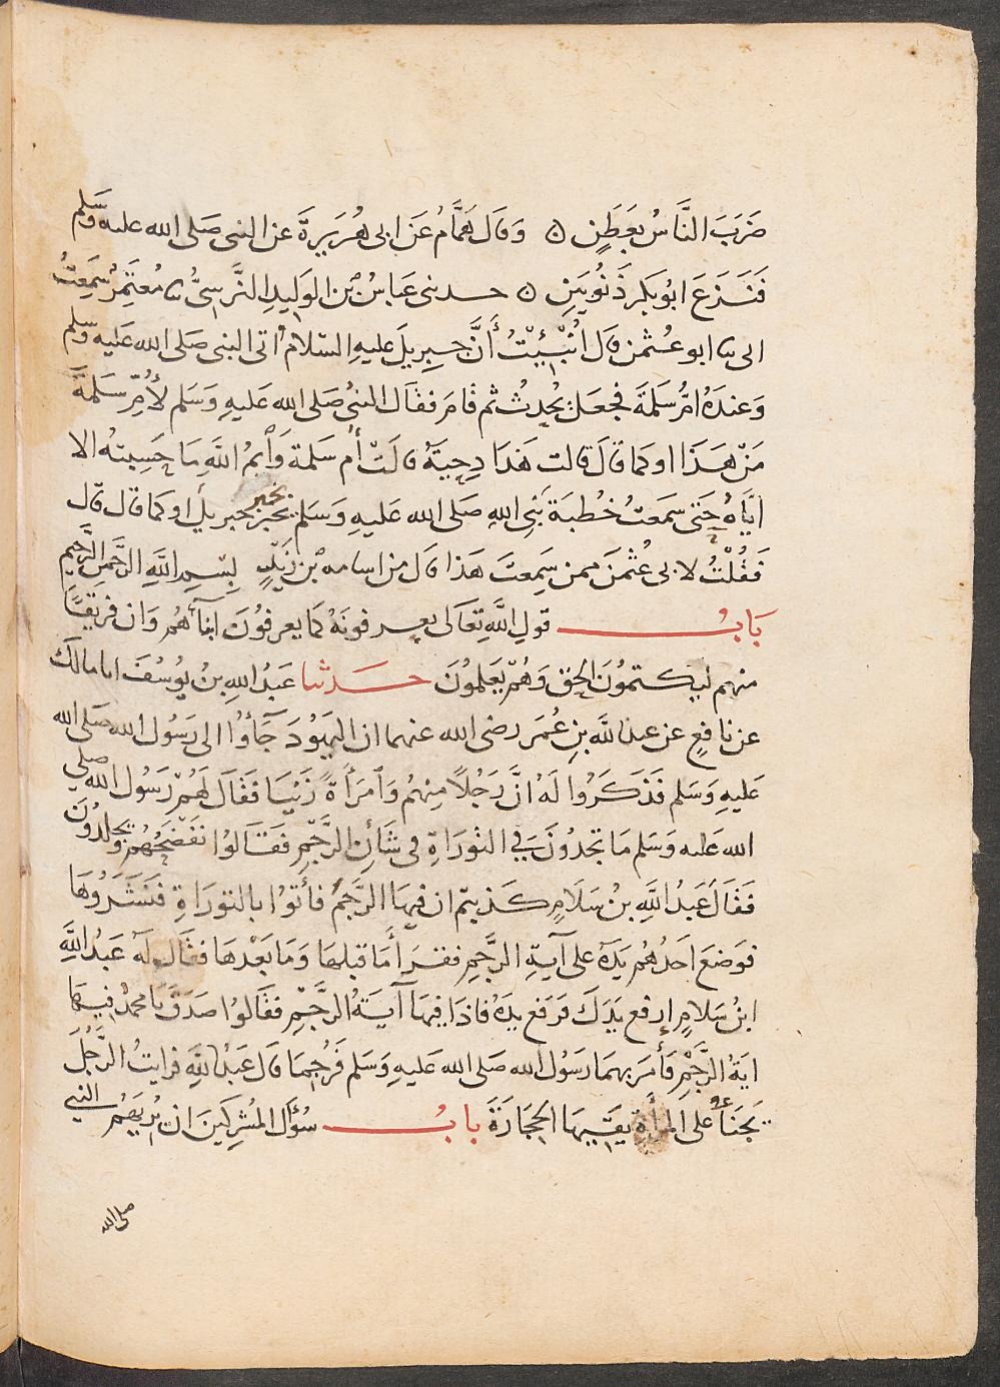 ضَرَبَ النَّاسُ بعَطَنٍ ۞ وَقَال هَمَّامُ عَن ابى هُرَيرَةَ عن النبى صَلى الله عليه وَسَلم
فَنَزعَ ابُوبكر ذَنُوبَينِ ۞ حدثنى عَباسُ بْن الوَلِيدِ النَّرسِىُّ ثنا مُعتَمِرٌ سَمِعتُ
ابى ثنا ابو عُثمن قال أُنْبِئْتُ أَنَّ جبرِيلَ عَليهِ السَّلام اتى النبى صَلى الله عَليه وَسلم
وَعندَهُ امُّ سَلمَة فجَعَل يُحدِثُ ثم قامَ فقَال النبىُ صَلى الله عَليهِ وَسَلم لأُمِّ سَلمَةَ
مَنْ هَذَا او كما قَال قَالت هَذا دِحيَةُ قَالَتْ أُم سَلمة وَايمُ اللهِ مَا حَسِبتهُ الا
ايَّاهُ حَتى سَمعتُ خُطبَة نَبِى الله صَلى الله عَليهِ وَسَلم يخبر يخبر جبريل او كما قال قال
فَقُلْتُ لابى عُثْمَن ممن سَمِعتَ هَذا قَال من اسامه بْن زَيْدٍ بِسْمِ اللهِ الرَّحْمنِ الرَّحِيمِ
بَابُ قولِ اللهِ تعَالى يعرفونَهُ كما يعرفُونَ ابناَءهُم وَان فريقًا
منهم ليكتمُونَ الحق وَهُمْ يَعلمُونَ حَدثنا عَبدُ اللهِ بنُ يوُسُفَ انا مالك
عن نافعٍ عن عبد الله بنِ عُمَر رضى الله عنهما ان اليَهُودَ جَآؤُا الى رَسُول الله صَلى الله
عَليهِ وَسَلم فَذكَرُوا لهُ انَّ رَجُلاً مِنهُم وَامرَأَةً زَنيَا فقَالَ لَهُمْ رَسُول الله صَلي
الله عَليه وَسَلم مَا تجدُونَ فِى التورَاةِ فى شَأنِ الرَّجْمِ فَقَالُوا نَفْضَحُهُم وَيجلدُونَ
فَقَالَ عَبدُ اللَّهِ بنُ سَلَامٍ كَذبتم ان فِيهَا الرَّجمُ فأَتوْا بالتورَاةِ فنَشَرُوهَا
فوَضعَ احَدُهُم يَدَهُ على آيَةِ الرَّجمِ فقرَأَ مَا قبلهَا وَمَا بَعْدهَا فقَال له عَبدُ اللهِ
ابنُ سَلامٍ ارفع يَدَكَ فرَفع يدَهُ فاذَا فِيهَا آيَةُ الرَّجْمِ فقَالوُا صَدَقَ يَا محمدُ فيهَا
ايَةُ الرَّجْمِ فَأَمَر بهمَا رَسُول الله صَلى الله عَليهِ وَسَلم فرُجمَا قَال عَبدُ اللهِ فرايتُ الرَّجُلَ
يَجنَأُ على المرأةِ يقِيهَا الحِجَارَةَ بابُ سُؤَال المُشرِكينَ ان يُريَهُم النبي
صلى الله